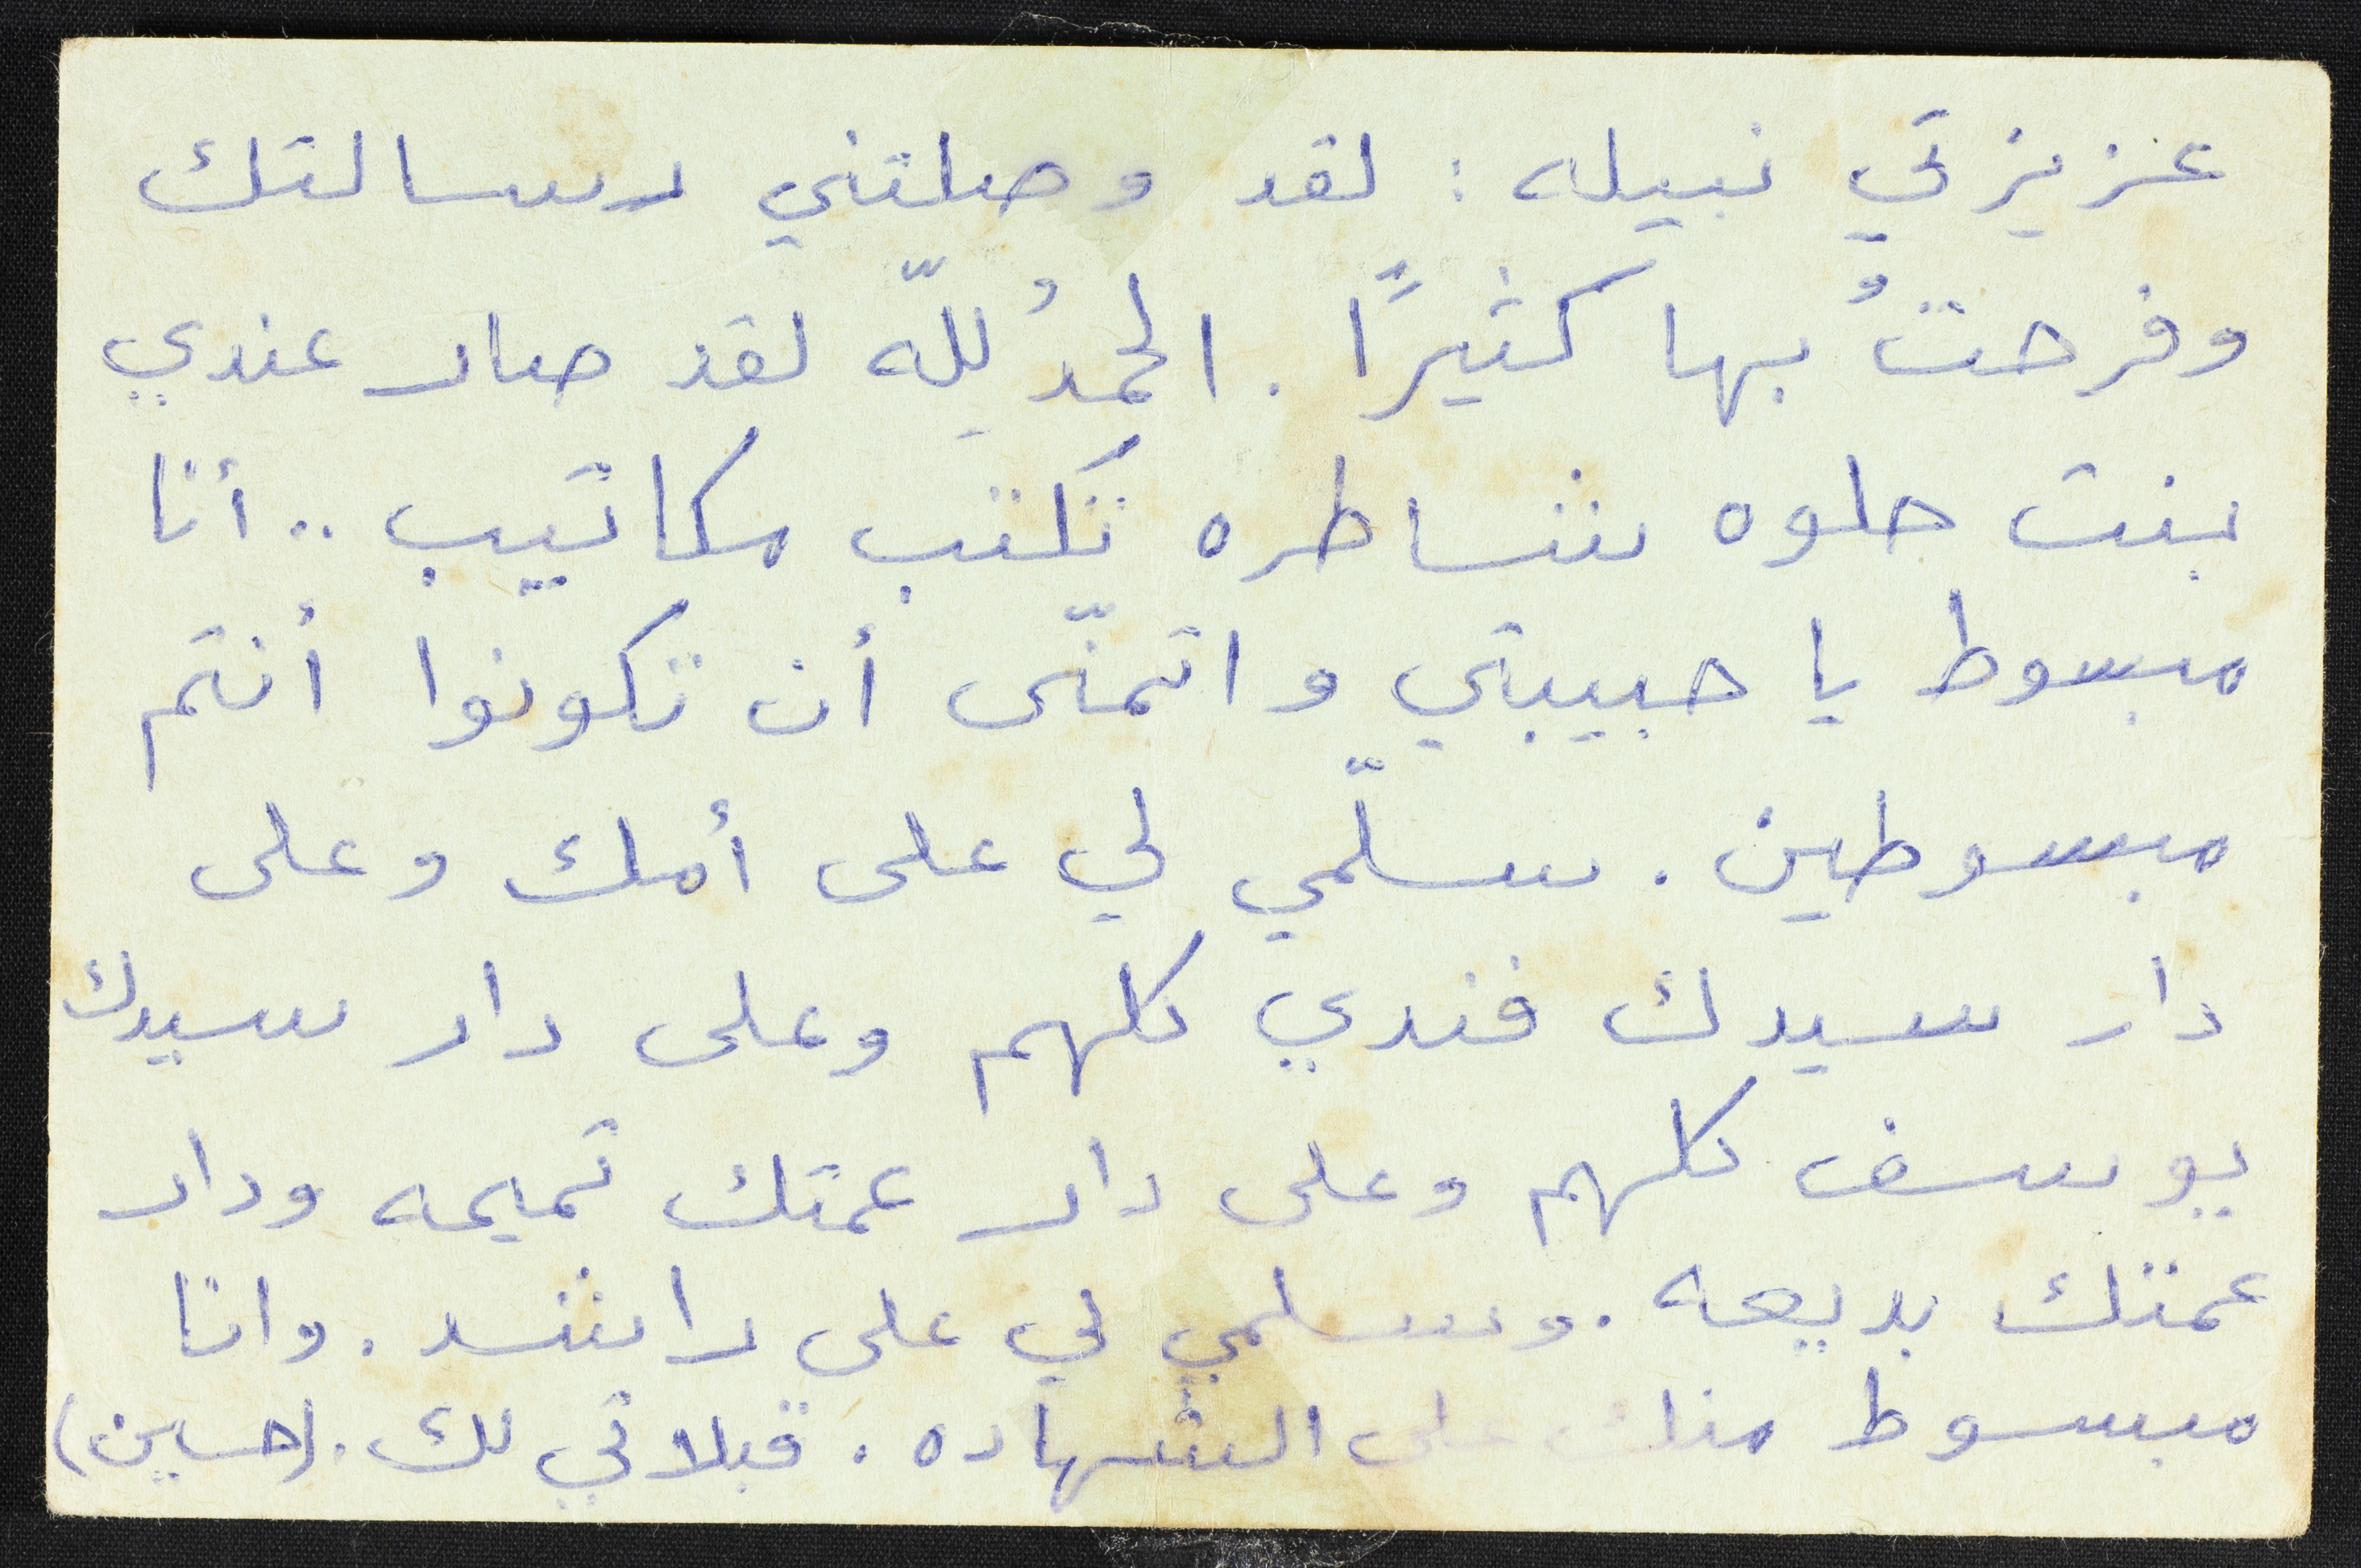 عزيزتي نبيله : لقد وصلتني رسالتك
وفرحتُ بها كثيرًا . الحمدُ للّه لقد صار عندي
بنت حلوه شاطره تكتب مكاتيب .. أنا
مبسوط يا حبيبتي واتمنّى أن تكونوا أنتم
مبسوطين . سلّمي لي على أمك وعلى
دار سيدك فندي كلهم وعلى دار سيدك
يوسف كلهم وعلى دار عمتك تميمه ودار
عمتك بديعه . وسلمي لي على راشد . وانا
مبسوط منك على الشهاده . قبلاتي لك . (حسين)